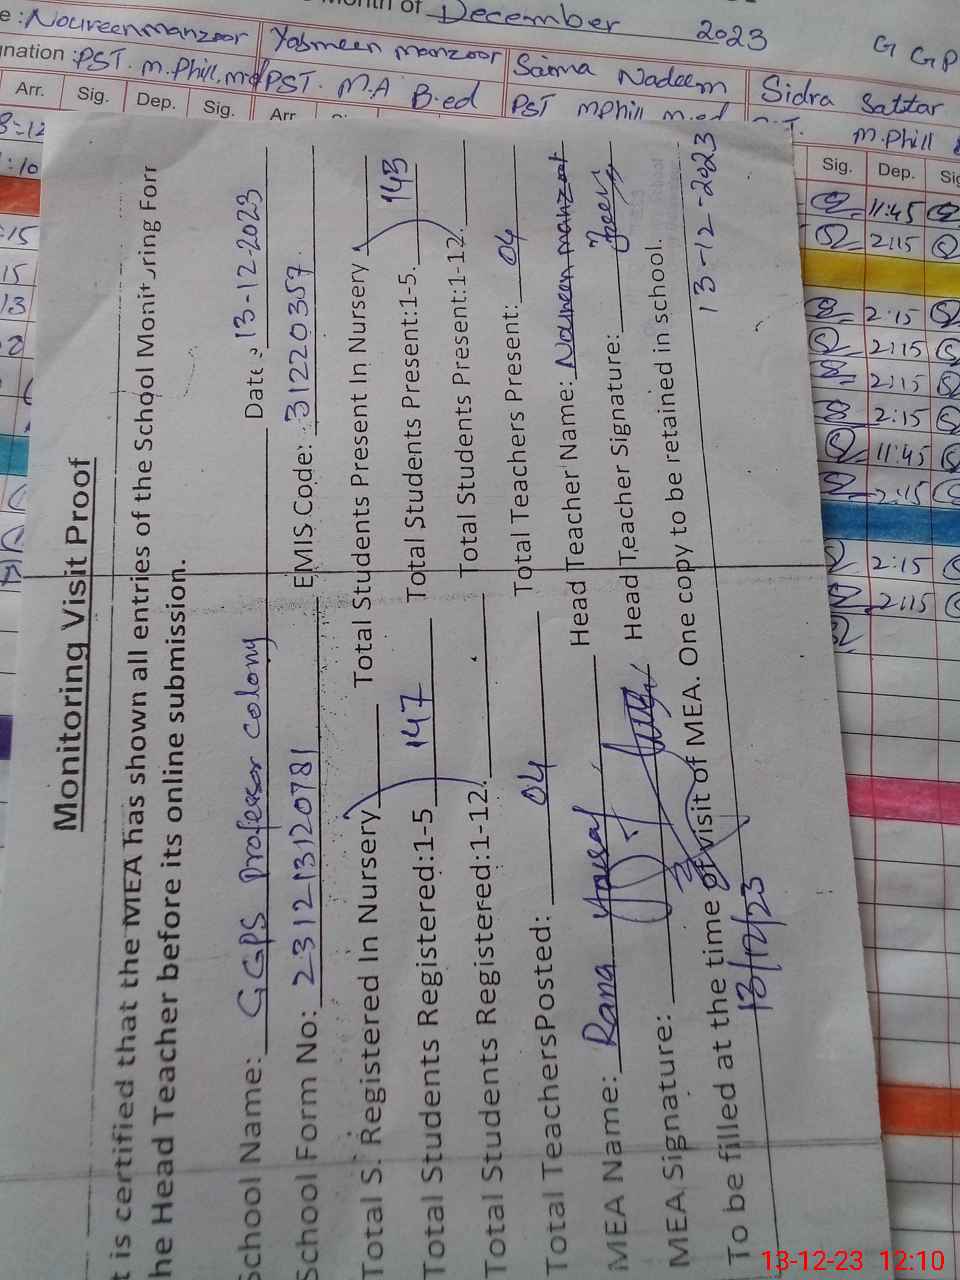 Month of December 2023
Noureen manzoor
Yasmeen manzoor
Saima Nadeem
Sidra Sattar
PST. M.Phill, m.ed
PST. M.A B.ed
PST MPhill m.ed
M.Phill
Arr. Sig. Dep. Sig. Arr
Sig. Dep. Sig
11:45
2:15
2:15
2:15
2:15
2:15
11:45
2:15
2:15
2:15
Monitoring Visit Proof
t is certified that the MEA has shown all entries of the School Monitoring Forr
he Head Teacher before its online submission.
School Name: GGPS Professor colony Date: 13-12-2023
School Form No: 2312-13120781 EMIS Code: 31220357
Total S. Registered In Nursery Total Students Present In Nursery
Total Students Registered:1-5 147 Total Students Present:1-5. 143
Total Students Registered:1-12. Total Students Present:1-12.
Total TeachersPosted: 04 Total Teachers Present: 04
MEA Name: Rana Head Teacher Name: Noureen manzoor
MEA Signature: Head Teacher Signature:
To be filled at the time of visit of MEA. One copy to be retained in school.
13/12/23 13-12-2023
13-12-23 12:10